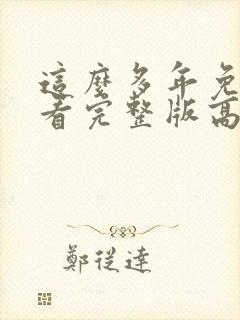 這麼多年免
看完整版高
鄭從達